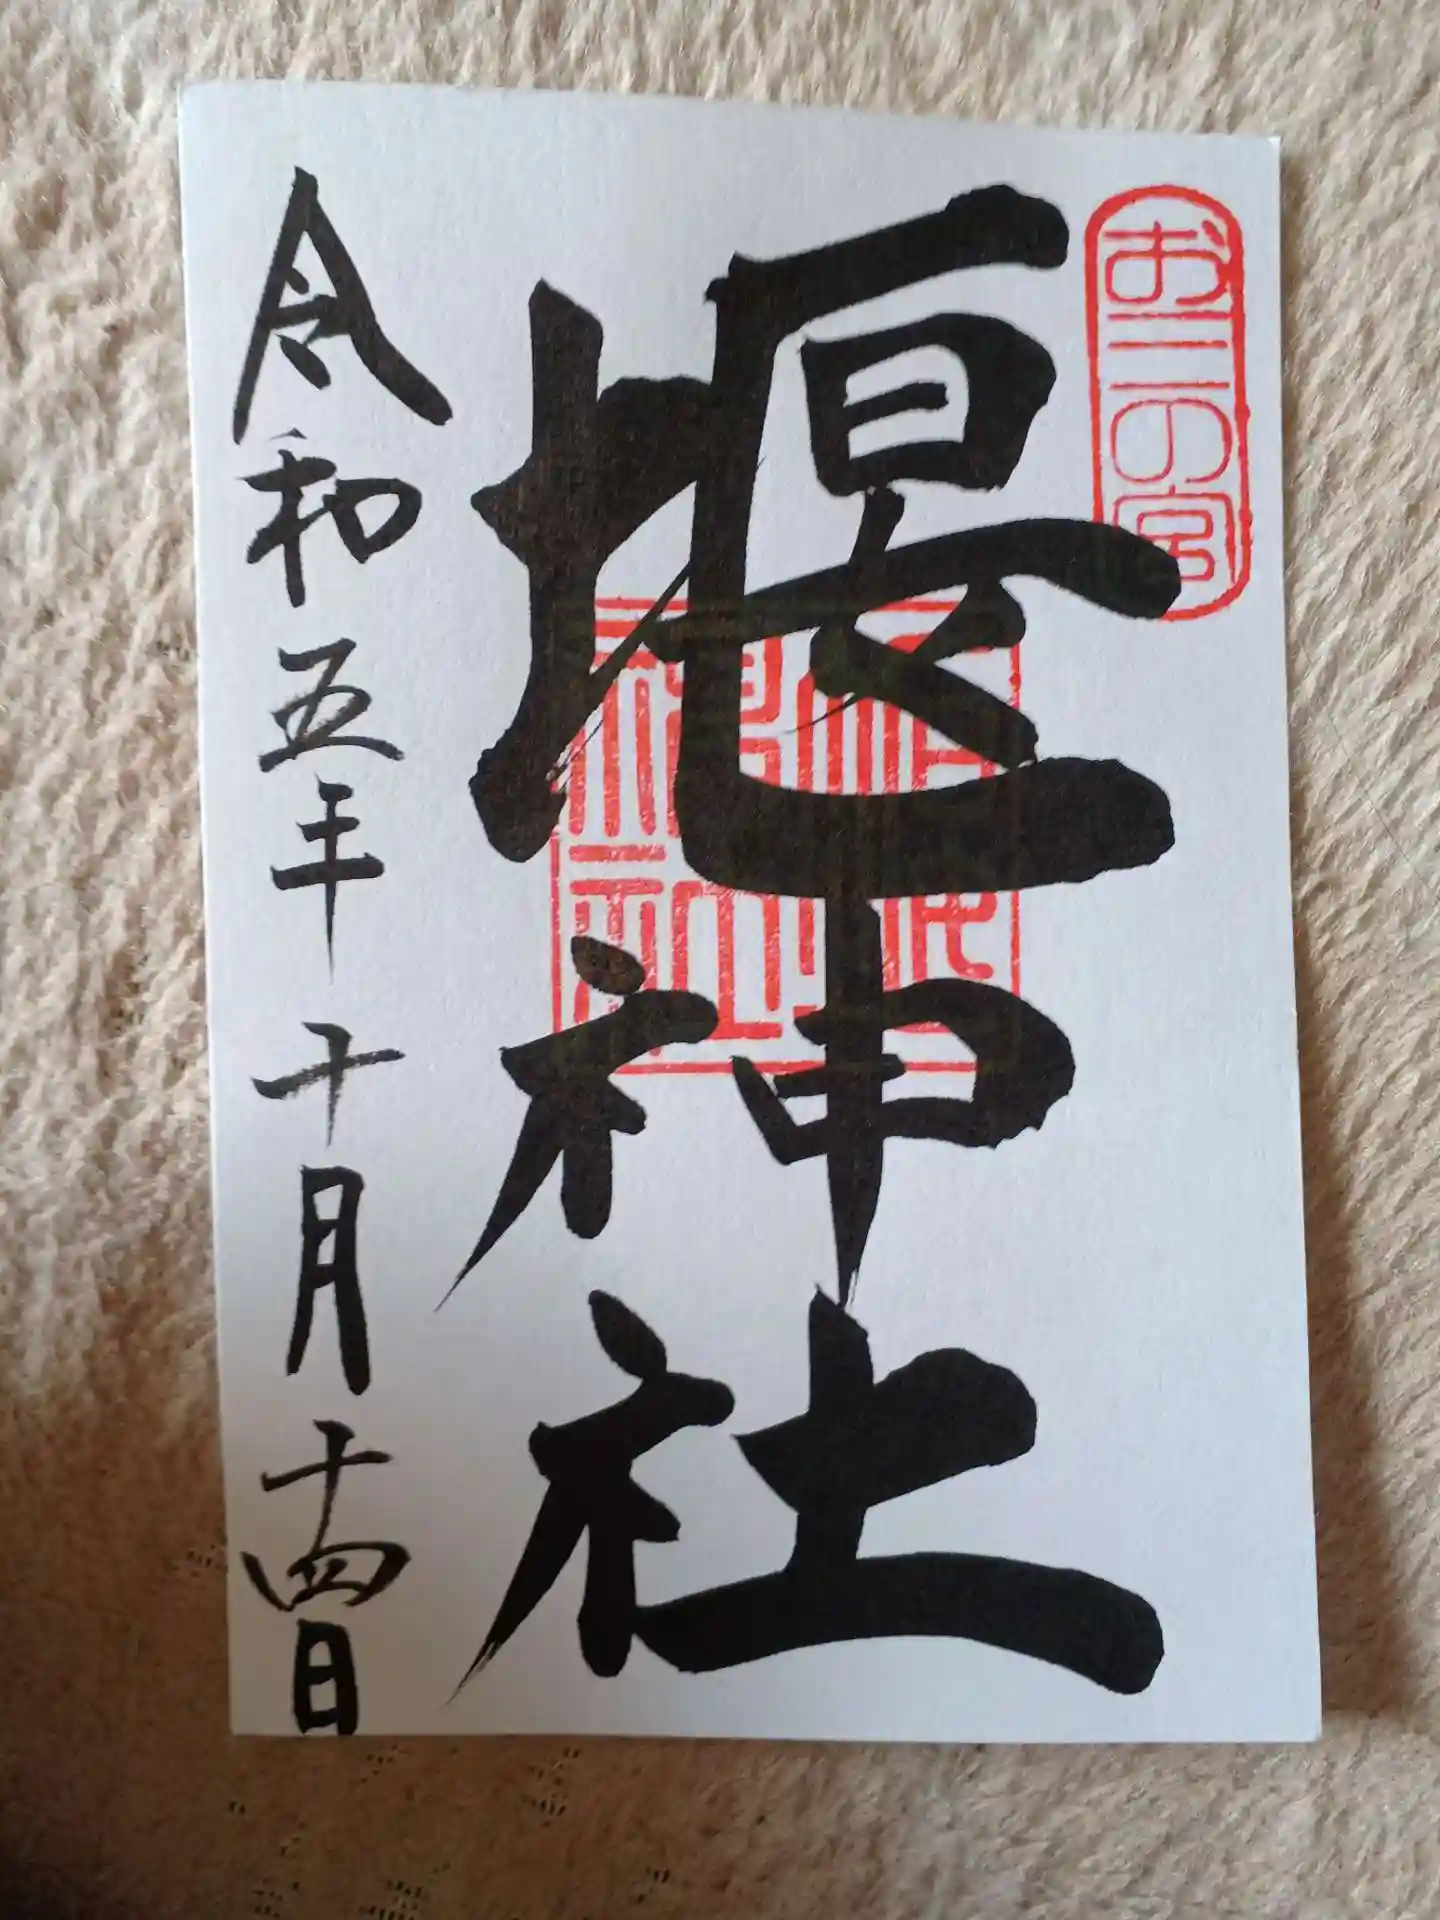 お三の宮
堰神社
令和五年十月十四日